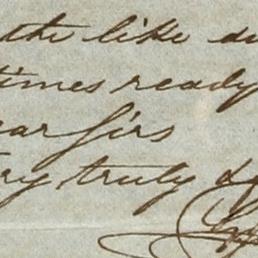 the like
times ready
ear sirs
ry truly